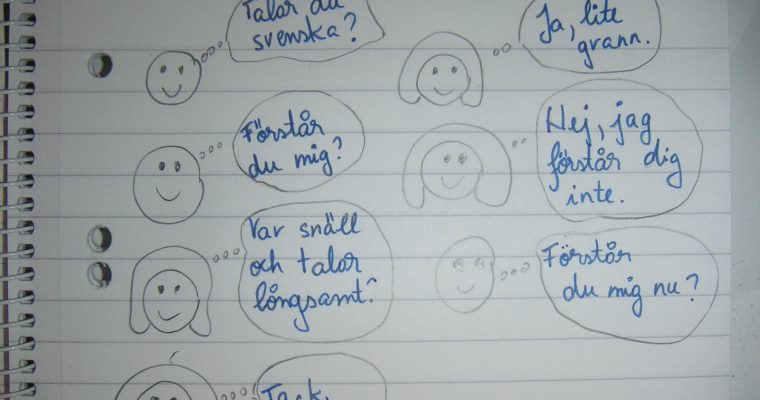 Talar du
svenska?
Ja, lite
grann.
Förstår
du mig?
Hej, jag
förstår dig
inte.
Var snäll
och talar
långsamt?
Förstår
du mig nu?
Tack,